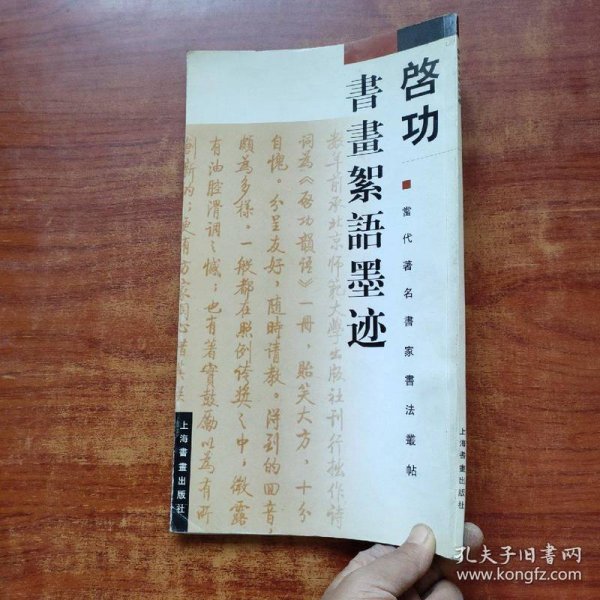 啓功
書畫絮語墨迹
當代著名書家書法叢帖
數年前承北京师范大學出版社刊行拙作诗
词為《啓功韻语》一冊，贻笑大方，十分
自愧。分呈友好，随時请教。得到的回音，
頗為多樣。一般都在照例传奖之中，微露
有油腔滑调之憾；也有著實鼓励以為有所
上海書畫出版社
上海書畫出版社
孔夫子旧書网
www.kongfz.com